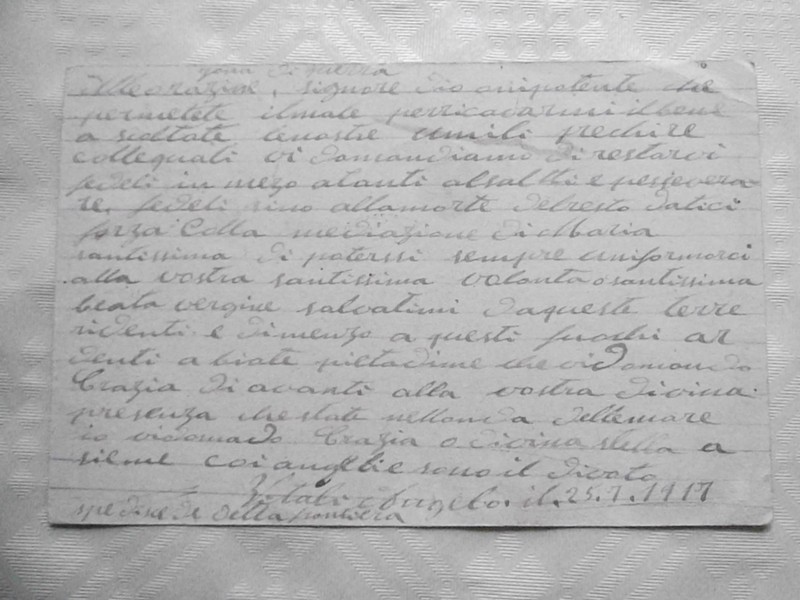 zona di guerra
signore dio onipotente che
permetete ilmale perricavarmi ilbene
a scoltate lenostre umili prechire
collequali vi domandiamo di restarvi
fedeli in mezo atanti absalti e persevera
re. fedeli sino allamorte delresto datici
forza Colla mediazione di Maria
santissima di poterssi sempre uniformarci
alla vostra santissima volonta o santissima
beata vergine salvatimi daqueste terre
e dimenzo a questi fuochi ar
denti abiate pietadime che vidomando
Grazia di avanti alla vostra divina
presenza che state nellonda delmare
io vidomado Grazia o divina stella a
sieme coi angeli e sono il divoto
Angelo. il. 25.7.1917
della frontiera